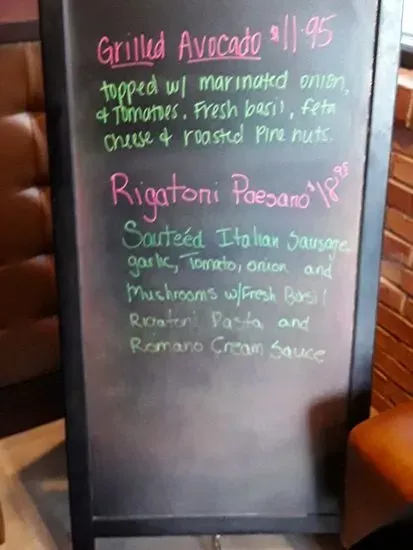 Grilled Avocado $11.95
topped w/ marinated onion,
& Tomatoes, Fresh basil, feta
cheese & roasted Pine nuts.
Rigatoni Paesano $18.95
Sauteéd Italian Sausage
garlic, Tomato, onion and
Mushrooms w/Fresh Basil
Rigatoni Pasta and
Romano Cream Sauce